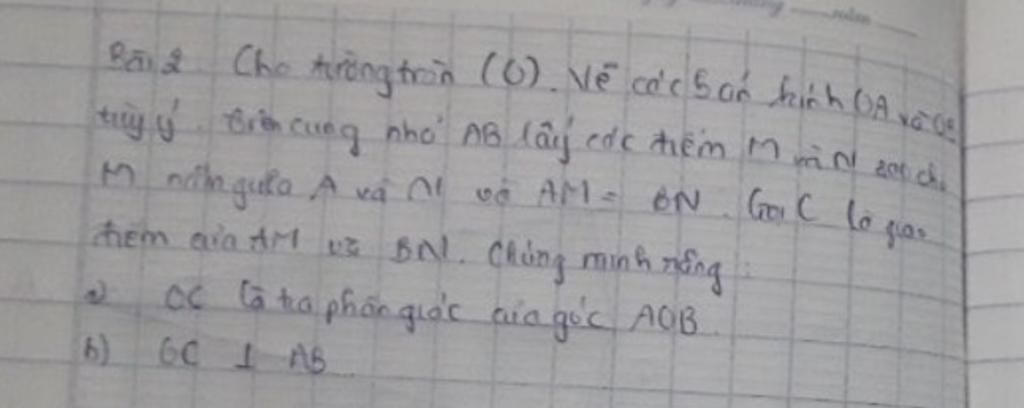 Bài 2 Cho đường tròn (O). Vẽ các bán kính OA và OB
tùy ý. Trên cung nhỏ AB lấy các điểm M và N sao cho
M nằm giữa A và N và AM = BN. Gọi C là giao
điểm của AM và BN. Chứng minh rằng:
a) OC là tia phân giác của góc AOB.
b) OC ⊥ AB